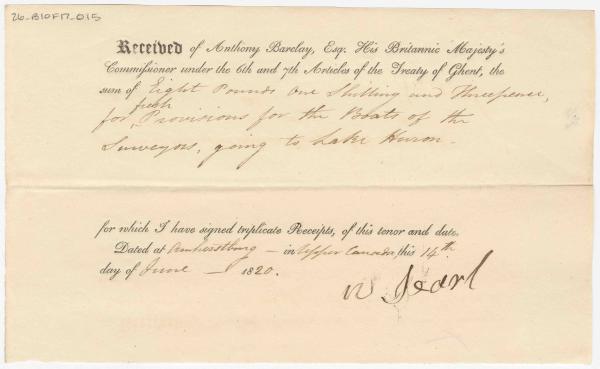 26-B10F17-015
Received of Anthony Barclay, Esq. His Britannic Majesty's
Commissioner under the 6th and 7th Articles of the Treaty of Ghent, the
sum of Eight Pounds One Shilling and Threepence,
fresh
for, Provisions for the Boats of the
Surveyors, going to Lake Huron.
for which I have signed triplicate Receipts, of this tenor and date.
Dated at Amherstburg – in Upper Canada, this 14th
day of June – 1820.